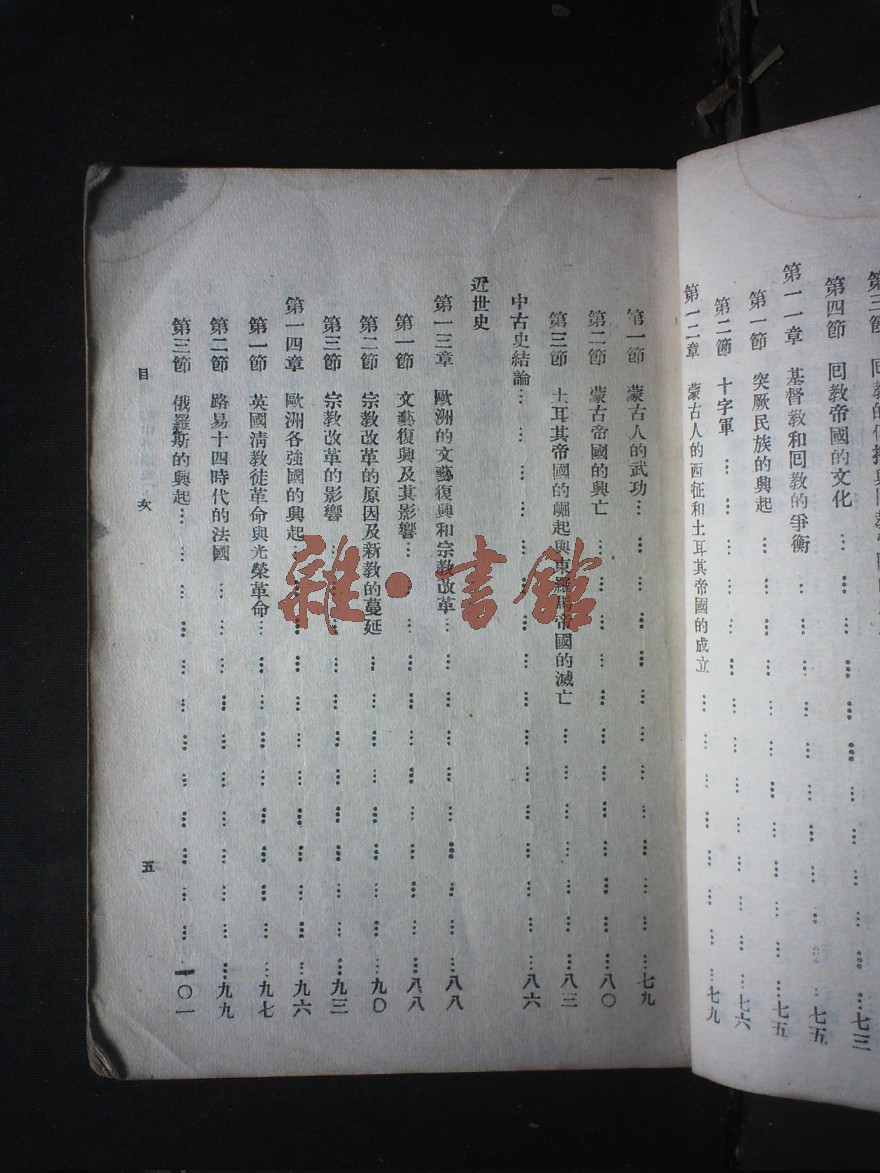 第四節　回教帝國的文化
七三
第一一章　基督教和回教的爭衡……七五
第一節　突厥民族的興起……七五
第二節　十字軍……七六
第一二章　蒙古人的西征和土耳其帝國的成立……七九
第一節　蒙古人的武功……七九
第二節　蒙古帝國的興亡……八〇
第三節　土耳其帝國的崛起與東羅馬帝國的滅亡……八三
中古史結論……八六
近世史
第一三章　歐洲的文藝復興和宗教改革……八八
第一節　文藝復興及其影響……八八
第二節　宗教改革的原因及新教的蔓延……九〇
第三節　宗教改革的影響……九三
第一四章　歐洲各強國的興起……九六
第一節　英國清教徒革命與光榮革命……九七
第二節　路易十四時代的法國……九九
第三節　俄羅斯的興起……一〇一
目次
五
雜·書館